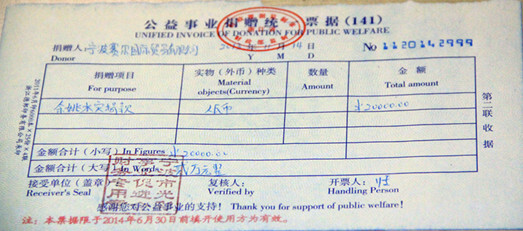 公益事业捐赠统一票据(141)
UNIFIED INVOICE OF DONATION FOR PUBLIC WELFARE
捐赠人 宁波赛尔国际贸易有限公司 2013年11月14日 No 1120142999
Donor Y M D
捐赠项目 实物(外币)种类 数量 金额
For purpose Material objects(Currency) Amount Total amount
余姚水灾捐款 人民币 ¥20000.00
金额合计(小写) In Figures ¥20000.00
金额合计(大写) In Words 贰万元整
接受单位(盖章) 复核人: 开票人:
Receiver's Seal Verified by Handling Person
感谢您对公益事业的支持! Thank you for support of public welfare!
注:本票据限于2014年6月30日前填开使用方为有效。
第二联收据